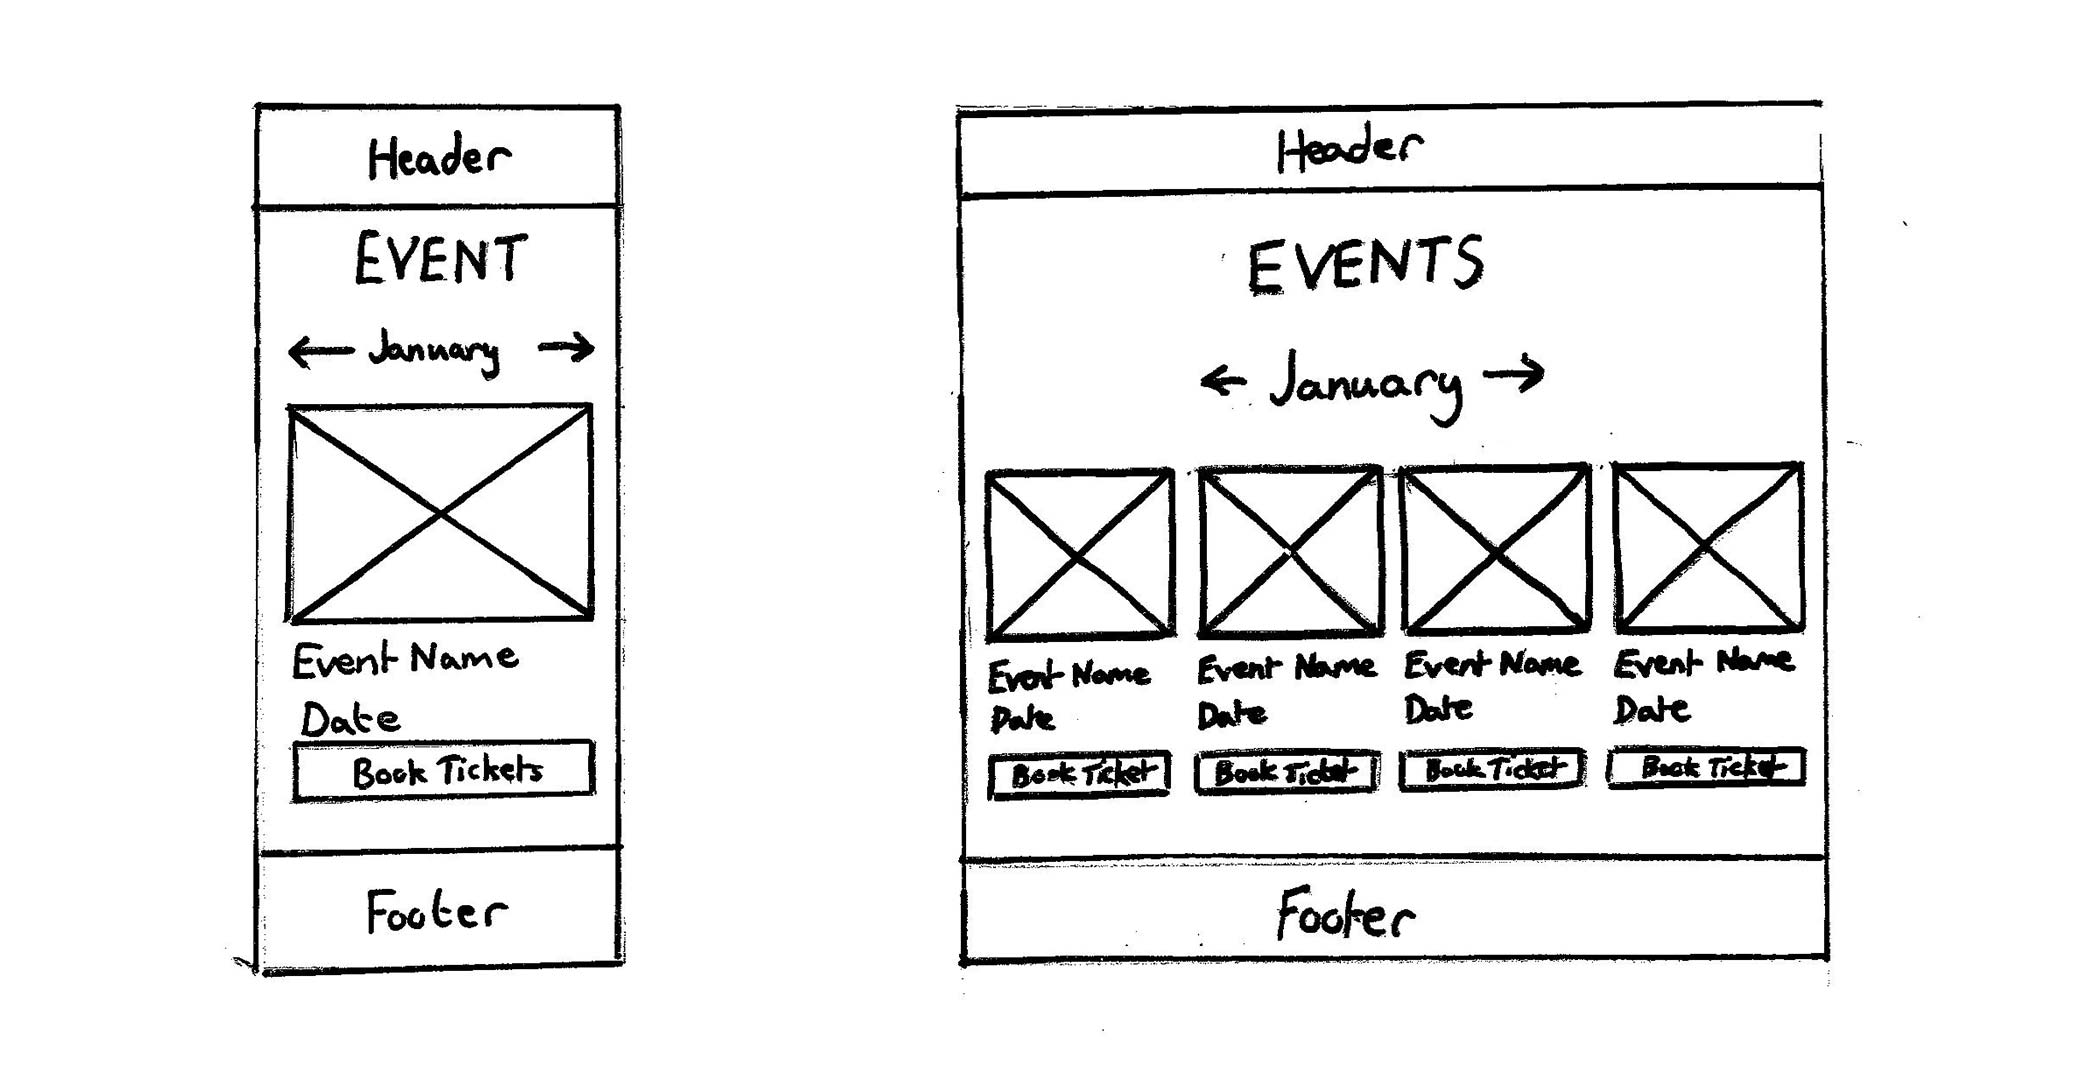 Header
EVENT
January
Event Name
Date
Book Tickets
Footer
Header
EVENTS
January
Event Name
Date
Book Ticket
Event Name
Date
Book Ticket
Event Name
Date
Book Ticket
Event Name
Date
Book Ticket
Footer